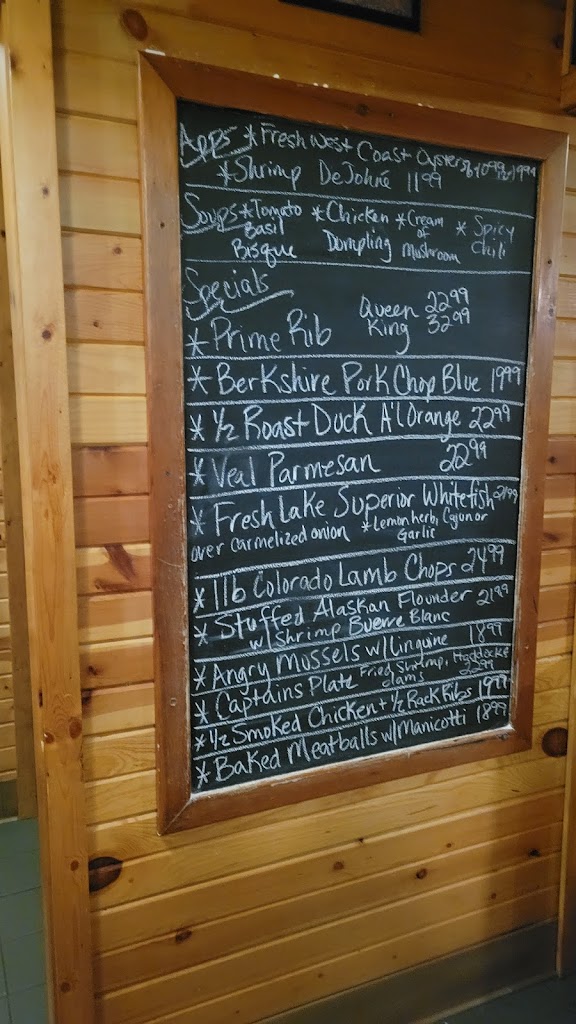 Apps * Fresh West Coast Oysters 6/10.99 12/19.99
* Shrimp DeJohné 11.99
Soups * Tomato Basil Bisque * Chicken Dumpling * Cream of Mushroom * Spicy Chili
Specials
* Prime Rib Queen 22.99
King 32.99
* Berkshire Pork Chop Blue 19.99
* 1/2 Roast Duck A'l Orange 22.99
* Veal Parmesan 22.99
* Fresh Lake Superior Whitefish 21.99
over carmelized onion * Lemon herb, Cajun or Garlic
* 1lb Colorado Lamb Chops 24.99
* Stuffed Alaskan Flounder 21.99
w/ Shrimp Buerre Blanc
* Angry Mussels w/ Linguine 18.99
* Captains Plate Fried Shrimp, Haddock & Clams 22.99
* 1/2 Smoked Chicken + 1/2 Rack Ribs 19.99
* Baked Meatballs w/ Manicotti 18.99